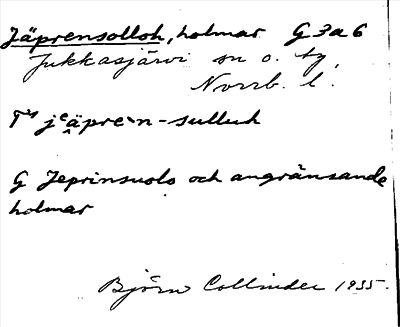 Jäprensolloh, holmar G 3a6
Jukkasjärvi sn o. tg,
Norrb. l.
jeäpre`n-sulluh
G Jeprinsuolo och angränsande
holmar
Björn Collinder 1955.